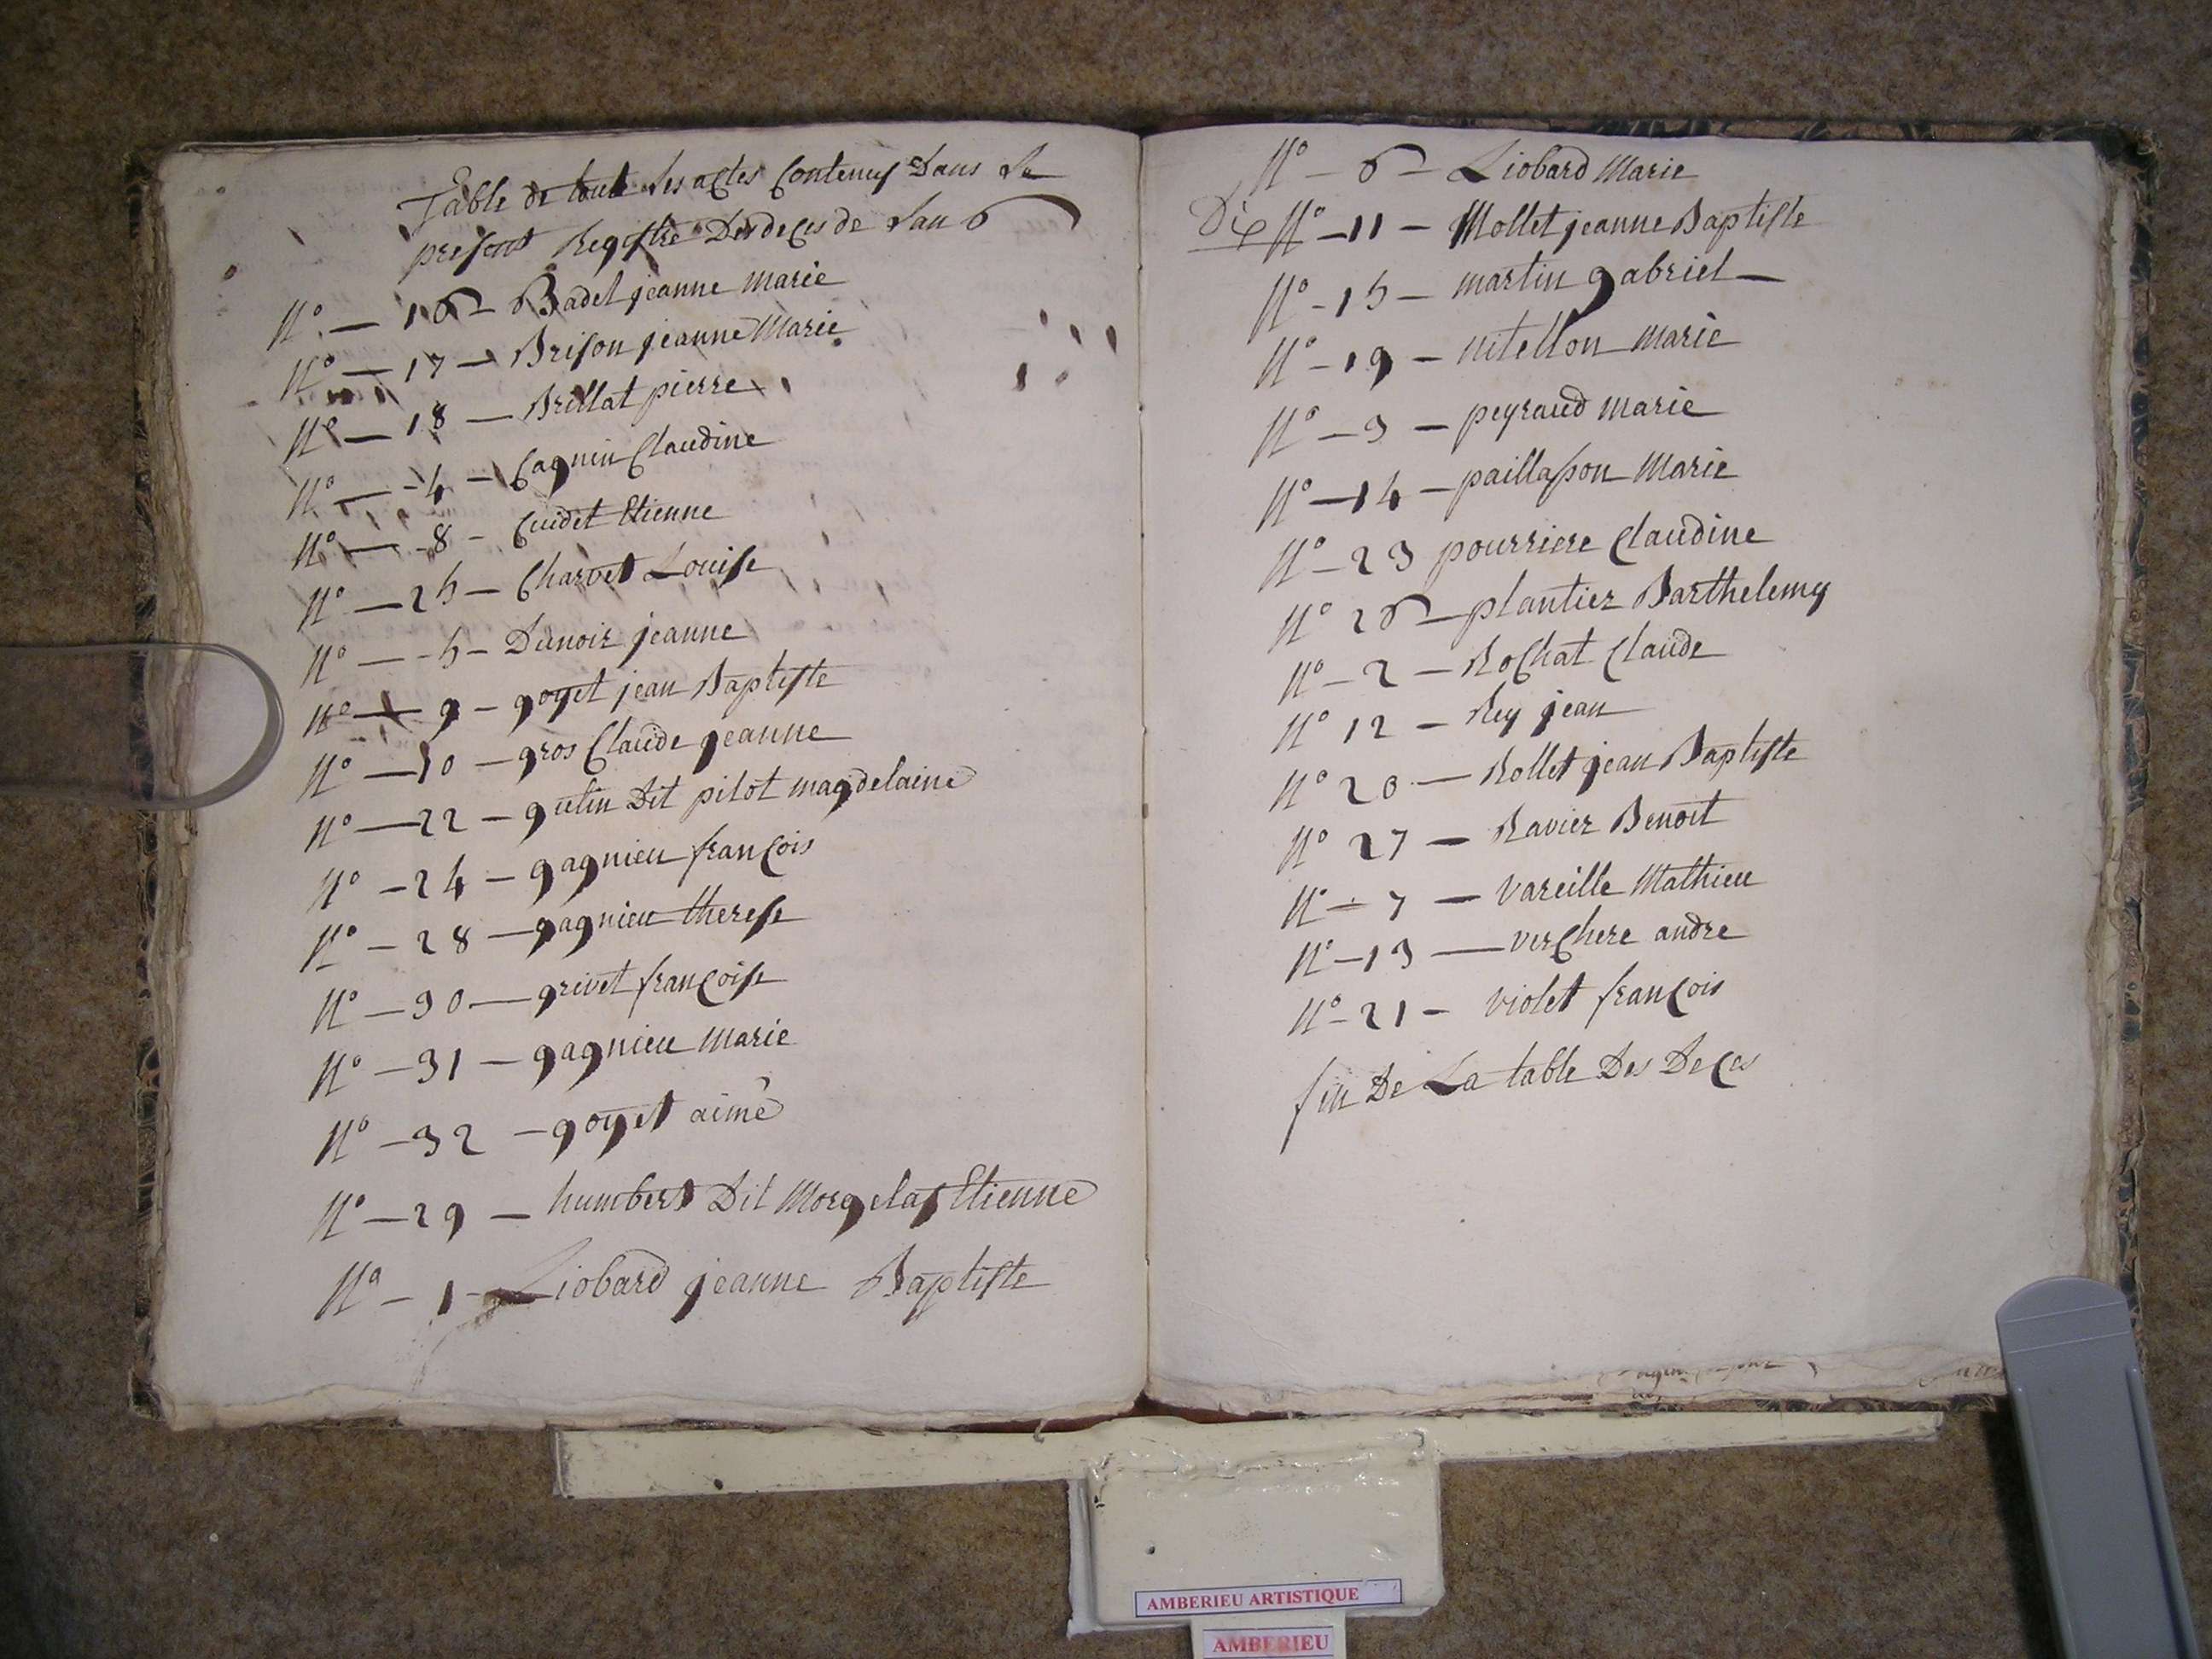 Table de tout les actes Contenus Dans Le
present Registre Des deces de Lan 6
N° — 16 — Badet jeanne marie
N° — 17 — Brison jeanne Marie
N° — 18 — Brillat pierre
N° — 4 — Cagnin Claudine
N° — 8 — Cuidet Etienne
N° — 25 — Charvet Louise
N° — 5 — Dunoir jeanne
N° — 9 — goyet jean Baptiste
N° — 10 — gros Claude jeanne
N° — 22 — gutin Dit pilot magdelaine
N° — 24 — gagnieu françois
N° — 28 — gagnieu therese
N° — 30 — grivet françoise
N° — 31 — gagnieu Marie
N° — 32 — goyet aimé
N° — 29 — humbert Dit Morgelas Etienne
N° — 1 — Liobard jeanne Baptiste
N° — 6 — Liobard Marie
N° — 11 — Mollet jeanne Baptiste
N° — 15 — martin gabriel —
N° — 19 — nitellon marie
N° — 3 — peyraud marie
N° — 14 — paillasson Marie
N° — 23 pourriere Claudine
N° 26 — plantier Barthelemy
N° — 2 — Rochat Claude
N° 12 — Rey jean
N° 20 — Rollet jean Baptiste
N° 27 — Ravier Benoit
N° — 7 — vareille Mathieu
N° — 13 — verchere andre
N° — 21 — violet françois
fin De La table Des Deces
AMBERIEU ARTISTIQUE
AMBERIEU